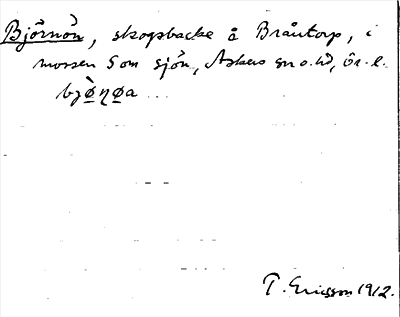 Björnön, skogsbacke å Bråtorp, i
mossen S om sjön, Askers sn o. hd, Ör. l.
bjø̀ɳøa
T. Ericsson 1912.